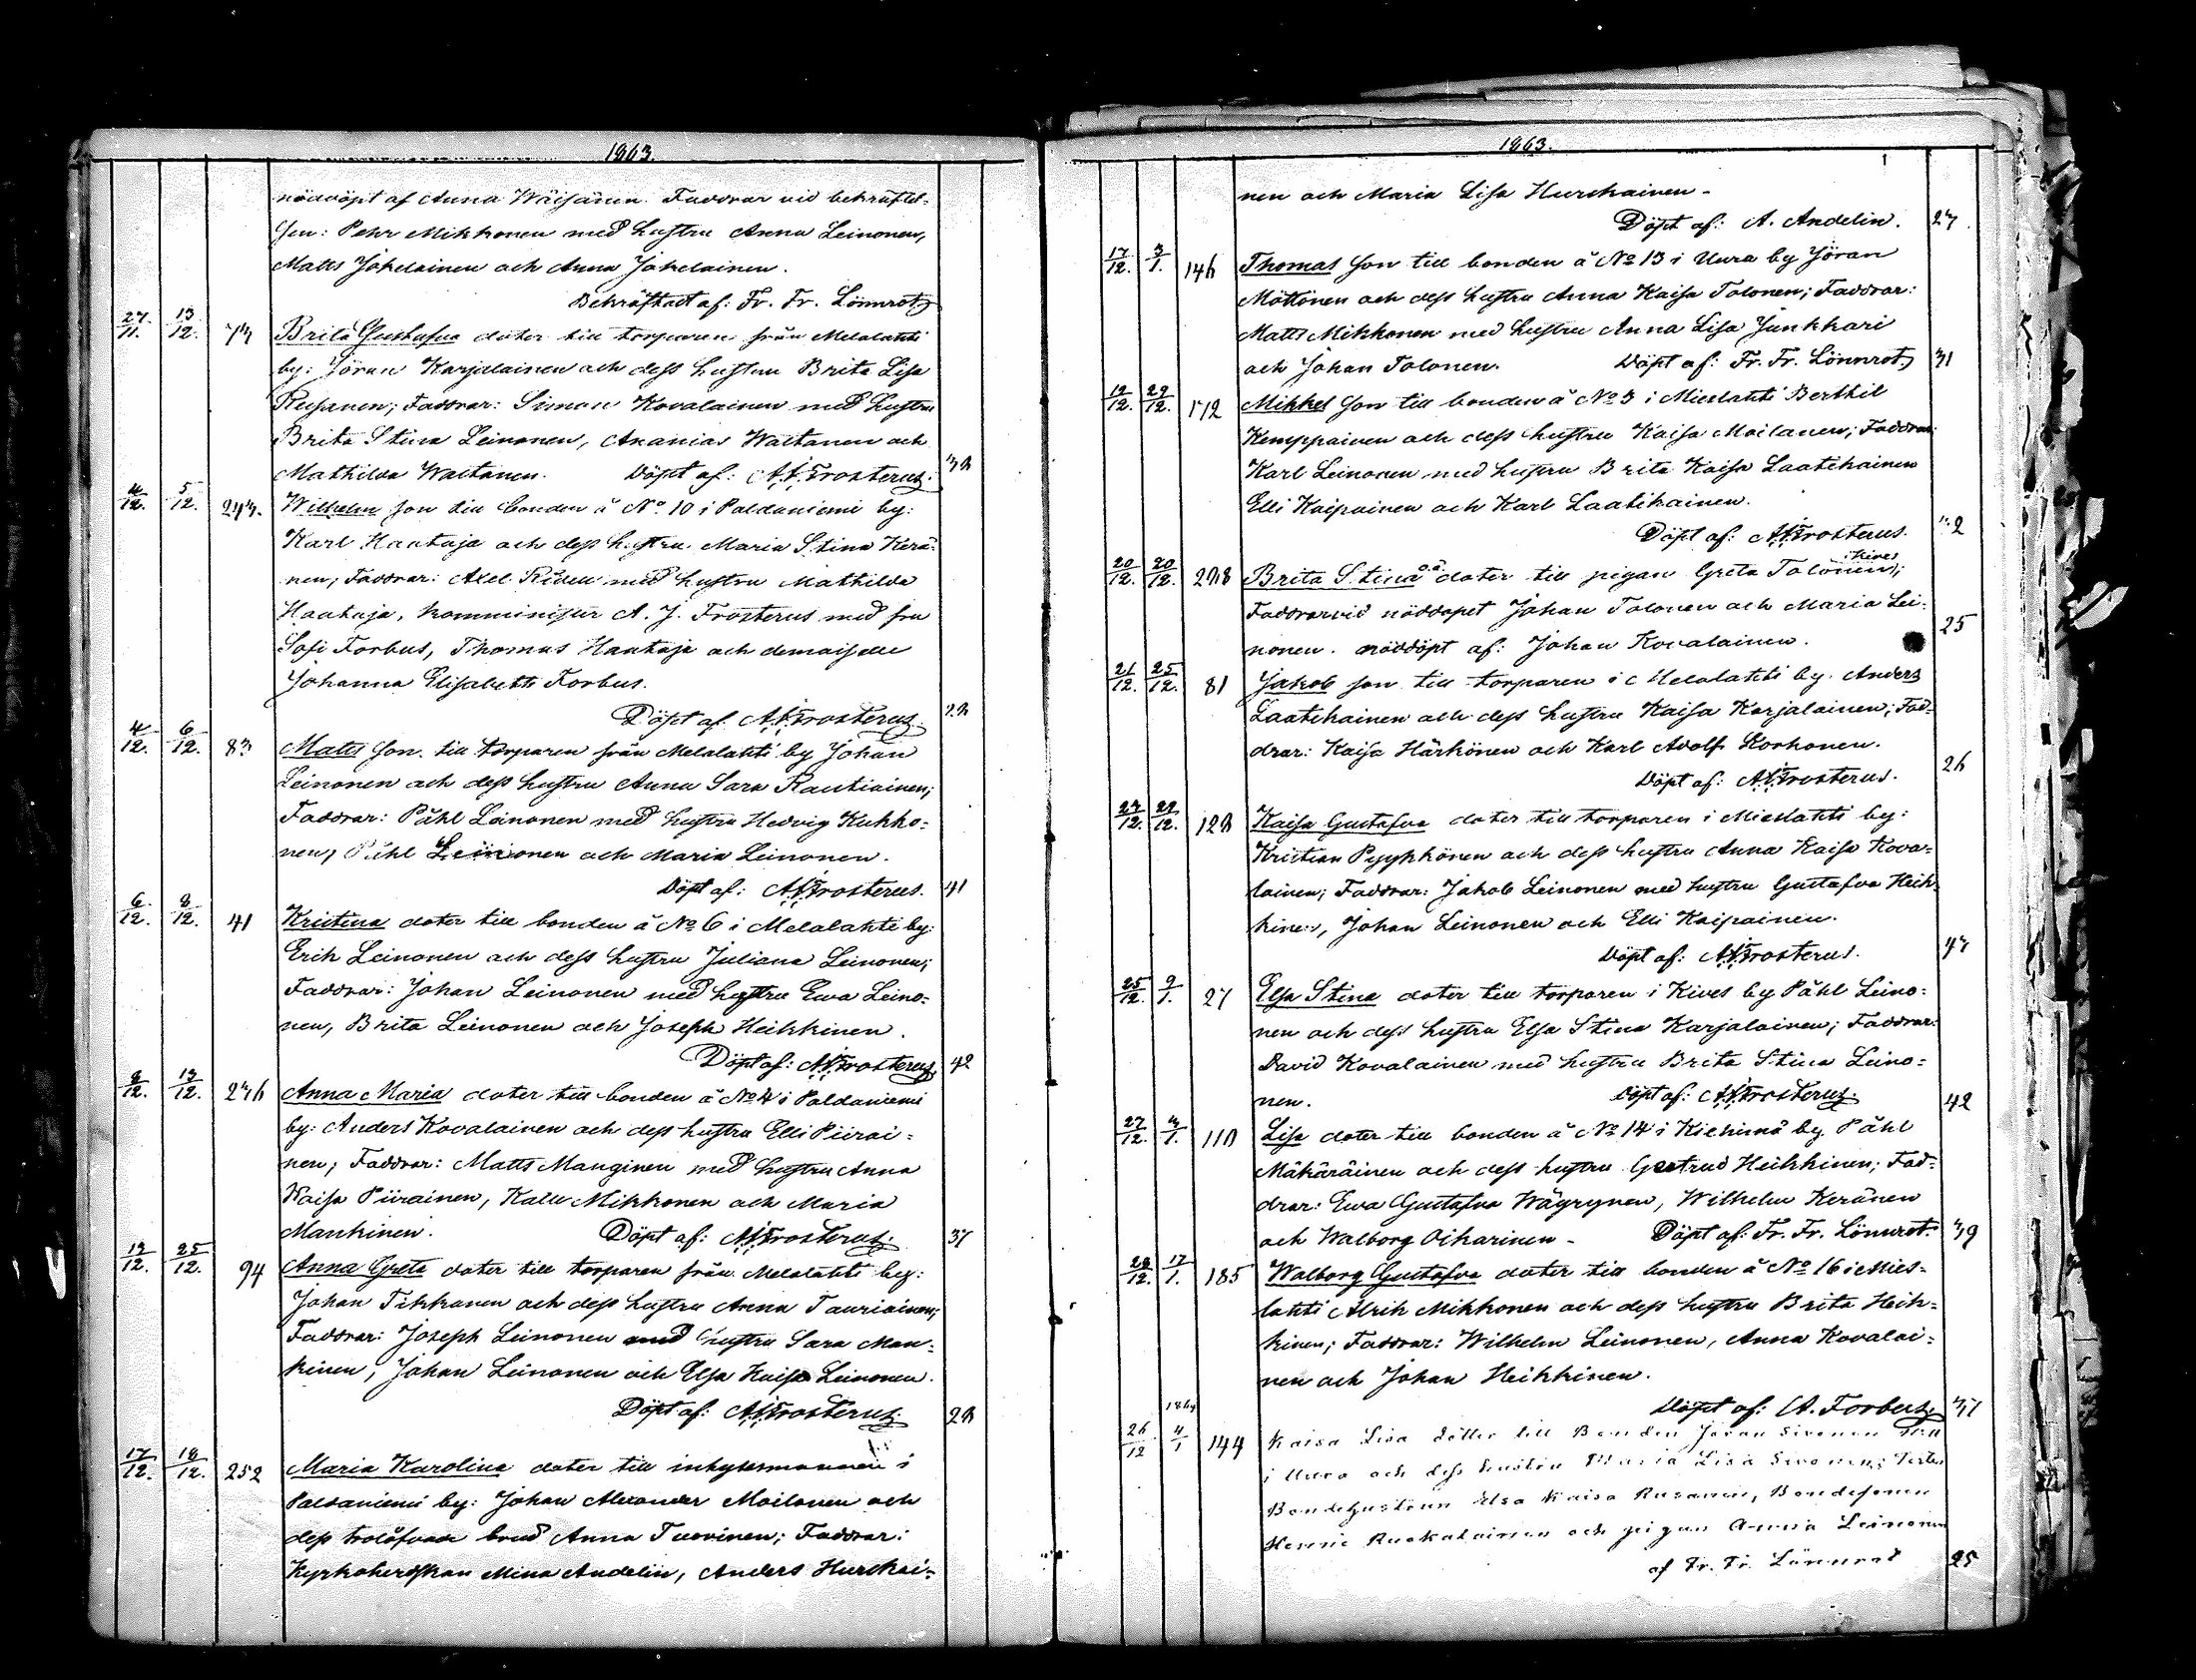 1863.
nöddöpt af Anna Wäisänen. Faddrar vid bekräftel-
sen: Pehr Mikkonen med hustru Anna Leinonen,
Matts Jokelainen och Anna Jokelainen.
Bekräftadt af: Fr. Fr. Lönnrot
27/11. 13/12. Brita Gustafva doter till torparen från Melalahti
by: Jöran Karjalainen och dess hustru Brita Lisa
Rusanen; Faddrar: Simon Kovalainen med hustru
Brita Stina Leinonen, Ananias Waltanen och
Mathilda Waltanen. Döpt af: A.J. Frosterus.
4/12. 5/12. Wilhelm son till bonden å No 10 i Paldaniemi by:
Karl Haataja och dess hustru Maria Stina Kerä-
nen; Faddrar: Axel Riden med hustru Mathilda
Haataja, komminister A. J. Frosterus med fru
Sofi Forbus, Thomas Haataja och demaiselle
Johanna Elisabeth Forbus.
Döpt af A.J. Frosterus
4/12. 6/12. 83 Matts son till torparen från Melalahti by Johan
Leinonen och dess hustru Anna Sara Rautiainen;
Faddrar: Påhl Leinonen med hustru Hedvig Kukko-
nen, Påhl Leinonen och Maria Leinonen.
Döpt af: A.J. Frosterus. 41
6/12. 8/12. 41 Kristina doter till bonden å No 6 i Melalahti by:
Erik Leinonen och dess hustru Juliana Leinonen;
Faddrar: Johan Leinonen med hustru Ewa Leino-
nen, Brita Leinonen och Joseph Heikkinen.
Döpt af: A.J. Frosterus 42
8/12. 13/12. 276 Anna Maria doter till bonden å No 4 i Paldaniemi
by: Anders Kovalainen och dess hustru Elli Piirai-
nen; Faddrar: Matts Manginen med hustru Anna
Kaisa Piirainen, Kalle Mikkonen och Maria
Mankinen. Döpt af: A.J. Frosterus. 37
12/12. 25/12. 94 Anna Greta doter till torparen från Melalahti by:
Johan Tikkanen och dess hustru Anna Tauriainen;
Faddrar: Joseph Leinonen med hustru Sara Man-
kinen, Johan Leinonen och Elsa Kaisa Leinonen.
Döpt af: A.J. Frosterus.
17/12. 18/12. 252 Maria Karolina doter till inhysesmannen i
Paldaniemi by: Johan Alexander Moilanen och
dess trolofvade brud Anna Tuovinen; Faddrar:
Kyrkoherdskan Mina Andelin, Anders Hurskai-
1863.
nen och Maria Lisa Hurskainen -
Döpt af: A. Andelin. 27
17/12. 3/1. 146 Thomas son till bonden å No 13 i Uura by Jöran
Möttönen och dess hustru Anna Kaisa Tolonen; Faddrar:
Matts Mikkonen med hustru Anna Lisa Junkkari
och Johan Tolonen. Döpt af: Fr. Fr. Lönnrot 31
12/12. 29/12. 172 Mikkel son till bonden å No 3 i Mieslahti Berthil
Kemppainen och dess hustru Kaisa Moilanen; Faddrar:
Karl Leinonen med hustru Brita Kaisa Laatikainen
Elli Kaipainen och Karl Laatikainen.
Döpt af: A.J. Frosterus.
20/12. 20/12. Brita Stina oä doter till pigan Greta Tolonen, i Kives;
Faddrar vid nöddopet Johan Tolonen och Maria Lei-
nonen. nöddöpt af: Johan Kovalainen. 25
21/12. 25/12. 81 Jakob son till torparen i Melalahti by. Anders
Laatikainen och dess hustru Kaisa Karjalainen; Fad-
drar: Kaisa Härkönen och Karl Adolf Korhonen.
Döpt af: A.J. Frosterus. 26
Kaisa Gustafva doter till torparen i Mieslahti by:
Kristian Pyykkönen och dess hustru Anna Kaisa Kova-
lainen; Faddrar: Jakob Leinonen med hustru Gustafva Heik-
kinen, Johan Leinonen och Elli Kaipainen.
Döpt af: A.J. Frosterus. 47
25/12. 9/1. 27 Elsa Stina doter till torparen i Kives by Påhl Leino-
nen och dess hustru Elsa Stina Karjalainen; Faddrar:
David Kovalainen med hustru Brita Stina Leino-
nen. Döpt af: A.J. Frosterus. 42
27/12. 4/1. Lisa doter till bonden å No 14 i Kiehimä by. Påhl
Mäkäräinen och dess hustru Gertrud Heikkinen; Fad-
drar: Ewa Gustafva Wäyrynen, Wilhelm Keränen
och Walborg Oikarinen - Döpt af: Fr. Fr. Lönnrot. 39
28/12. 17/1. 185 Walborg Gustafva doter till bonden å No 16 i Mies-
lahti Alrik Mikkonen och dess hustru Brita Heik-
kinen; Faddrar: Wilhelm Leinonen, Anna Kovalai-
nen och Johan Heikkinen.
Döpt af: A. Forbus 37
1864
26/12 4/1 144 Kaisa Lisa dotter till Bonden Jöran Sivonen
i Uura och dess hustru Maria Lisa Sivonen;
Bondehustrun Elsa Kaisa Rusanen, Bondesonen
Henrik Ruokolainen och pigan Anna Leinonen
af Fr. Fr. Lönnrot 25